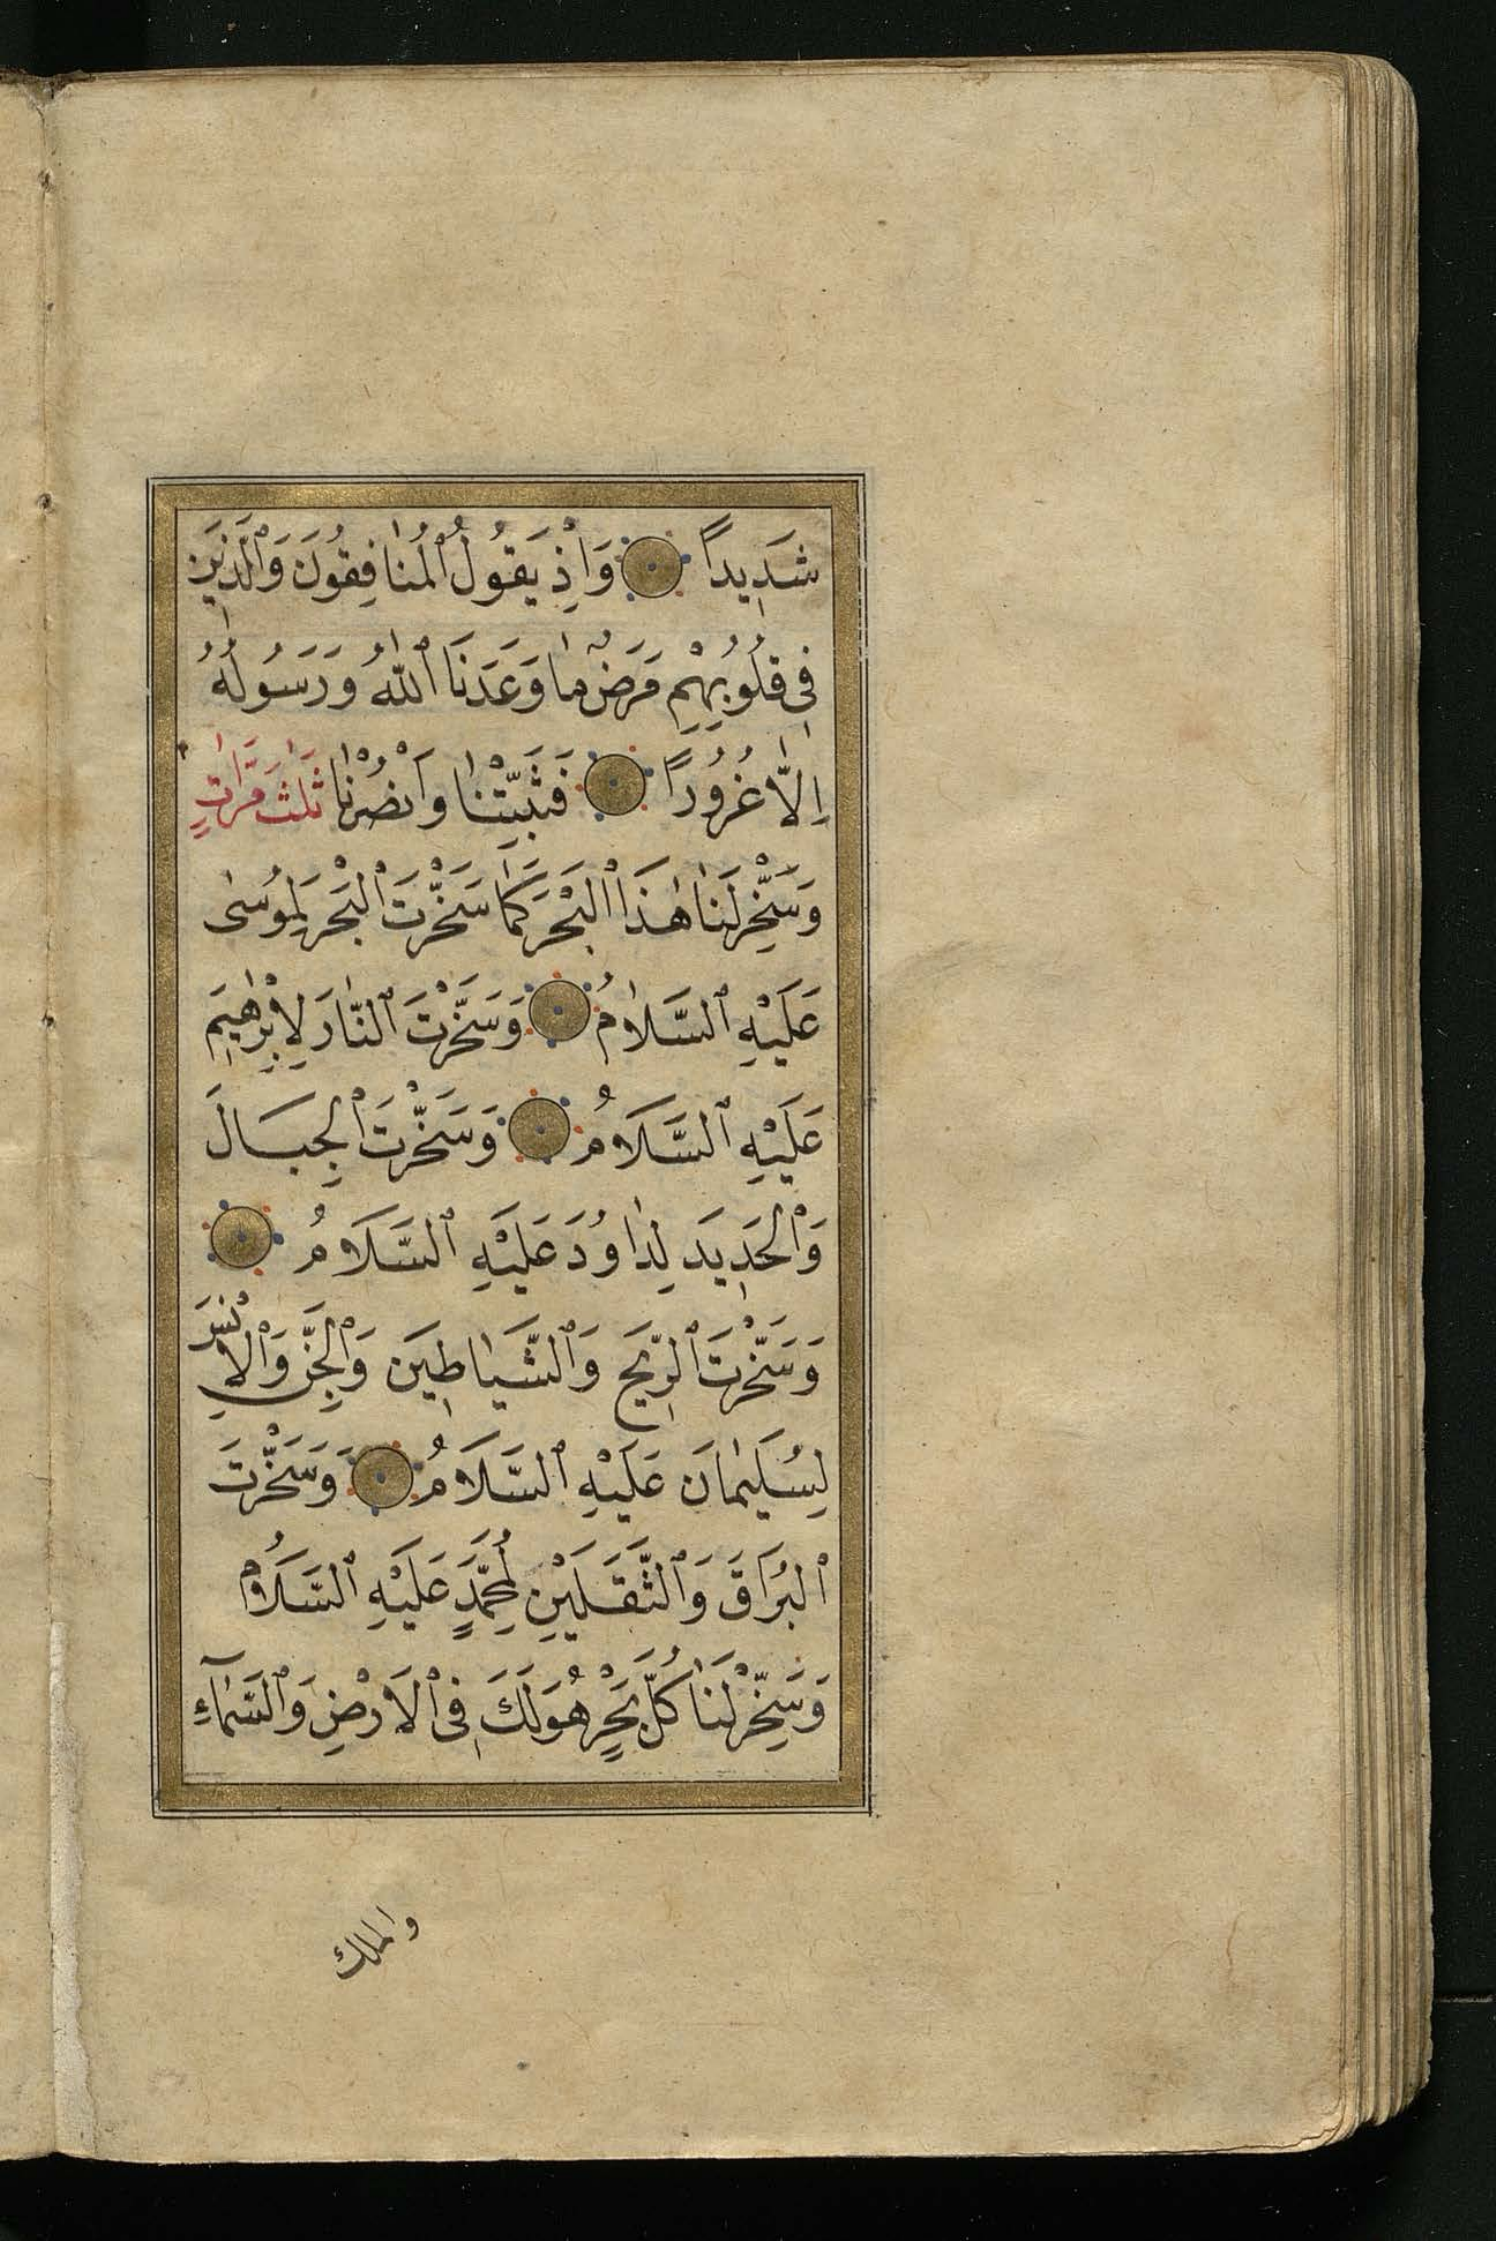 شَدِيداً وَاِذْ يَقُولُ ٱلْمُنَافِقُونَ وَٱلَّذِينَ
فِى قُلُوبِهِمْ مَرَضٌ مَا وَعَدَنَا ٱللّٰهُ وَرَسُولُهُ
اِلَّا غُرُوراً فَثَبِّتْنَا وَانْصُرْنَا ثَلٰثَ مَرَّاتٍ
وَسَخِّرْ لَنَا هٰذَا ٱلْبَحْرَ كَمَا سَخَّرْتَ ٱلْبَحْرَ لِمُوسٰى
عَلَيْهِ ٱلسَّلَامُ وَسَخَّرْتَ ٱلنَّارَ لِاِبْرٰهِيمَ
عَلَيْهِ ٱلسَّلَامُ وَسَخَّرْتَ ٱلْجِبَالَ
وَٱلْحَدِيدَ لِدَاوُدَ عَلَيْهِ ٱلسَّلَامُ
وَسَخَّرْتَ ٱلرِّيحَ وَٱلشَّيَاطِينَ وَٱلْجِنَّ وَٱلْاِنْسَ
لِسُلَيْمَانَ عَلَيْهِ ٱلسَّلَامُ وَسَخَّرْتَ
ٱلْبُرَاقَ وَٱلثَّقَلَيْنِ لِمُحَمَّدٍ عَلَيْهِ ٱلسَّلَامُ
وَسَخِّرْ لَنَا كُلَّ بَحْرٍ هُوَ لَكَ فِى ٱلْاَرْضِ وَٱلسَّمَآءِ
والملك